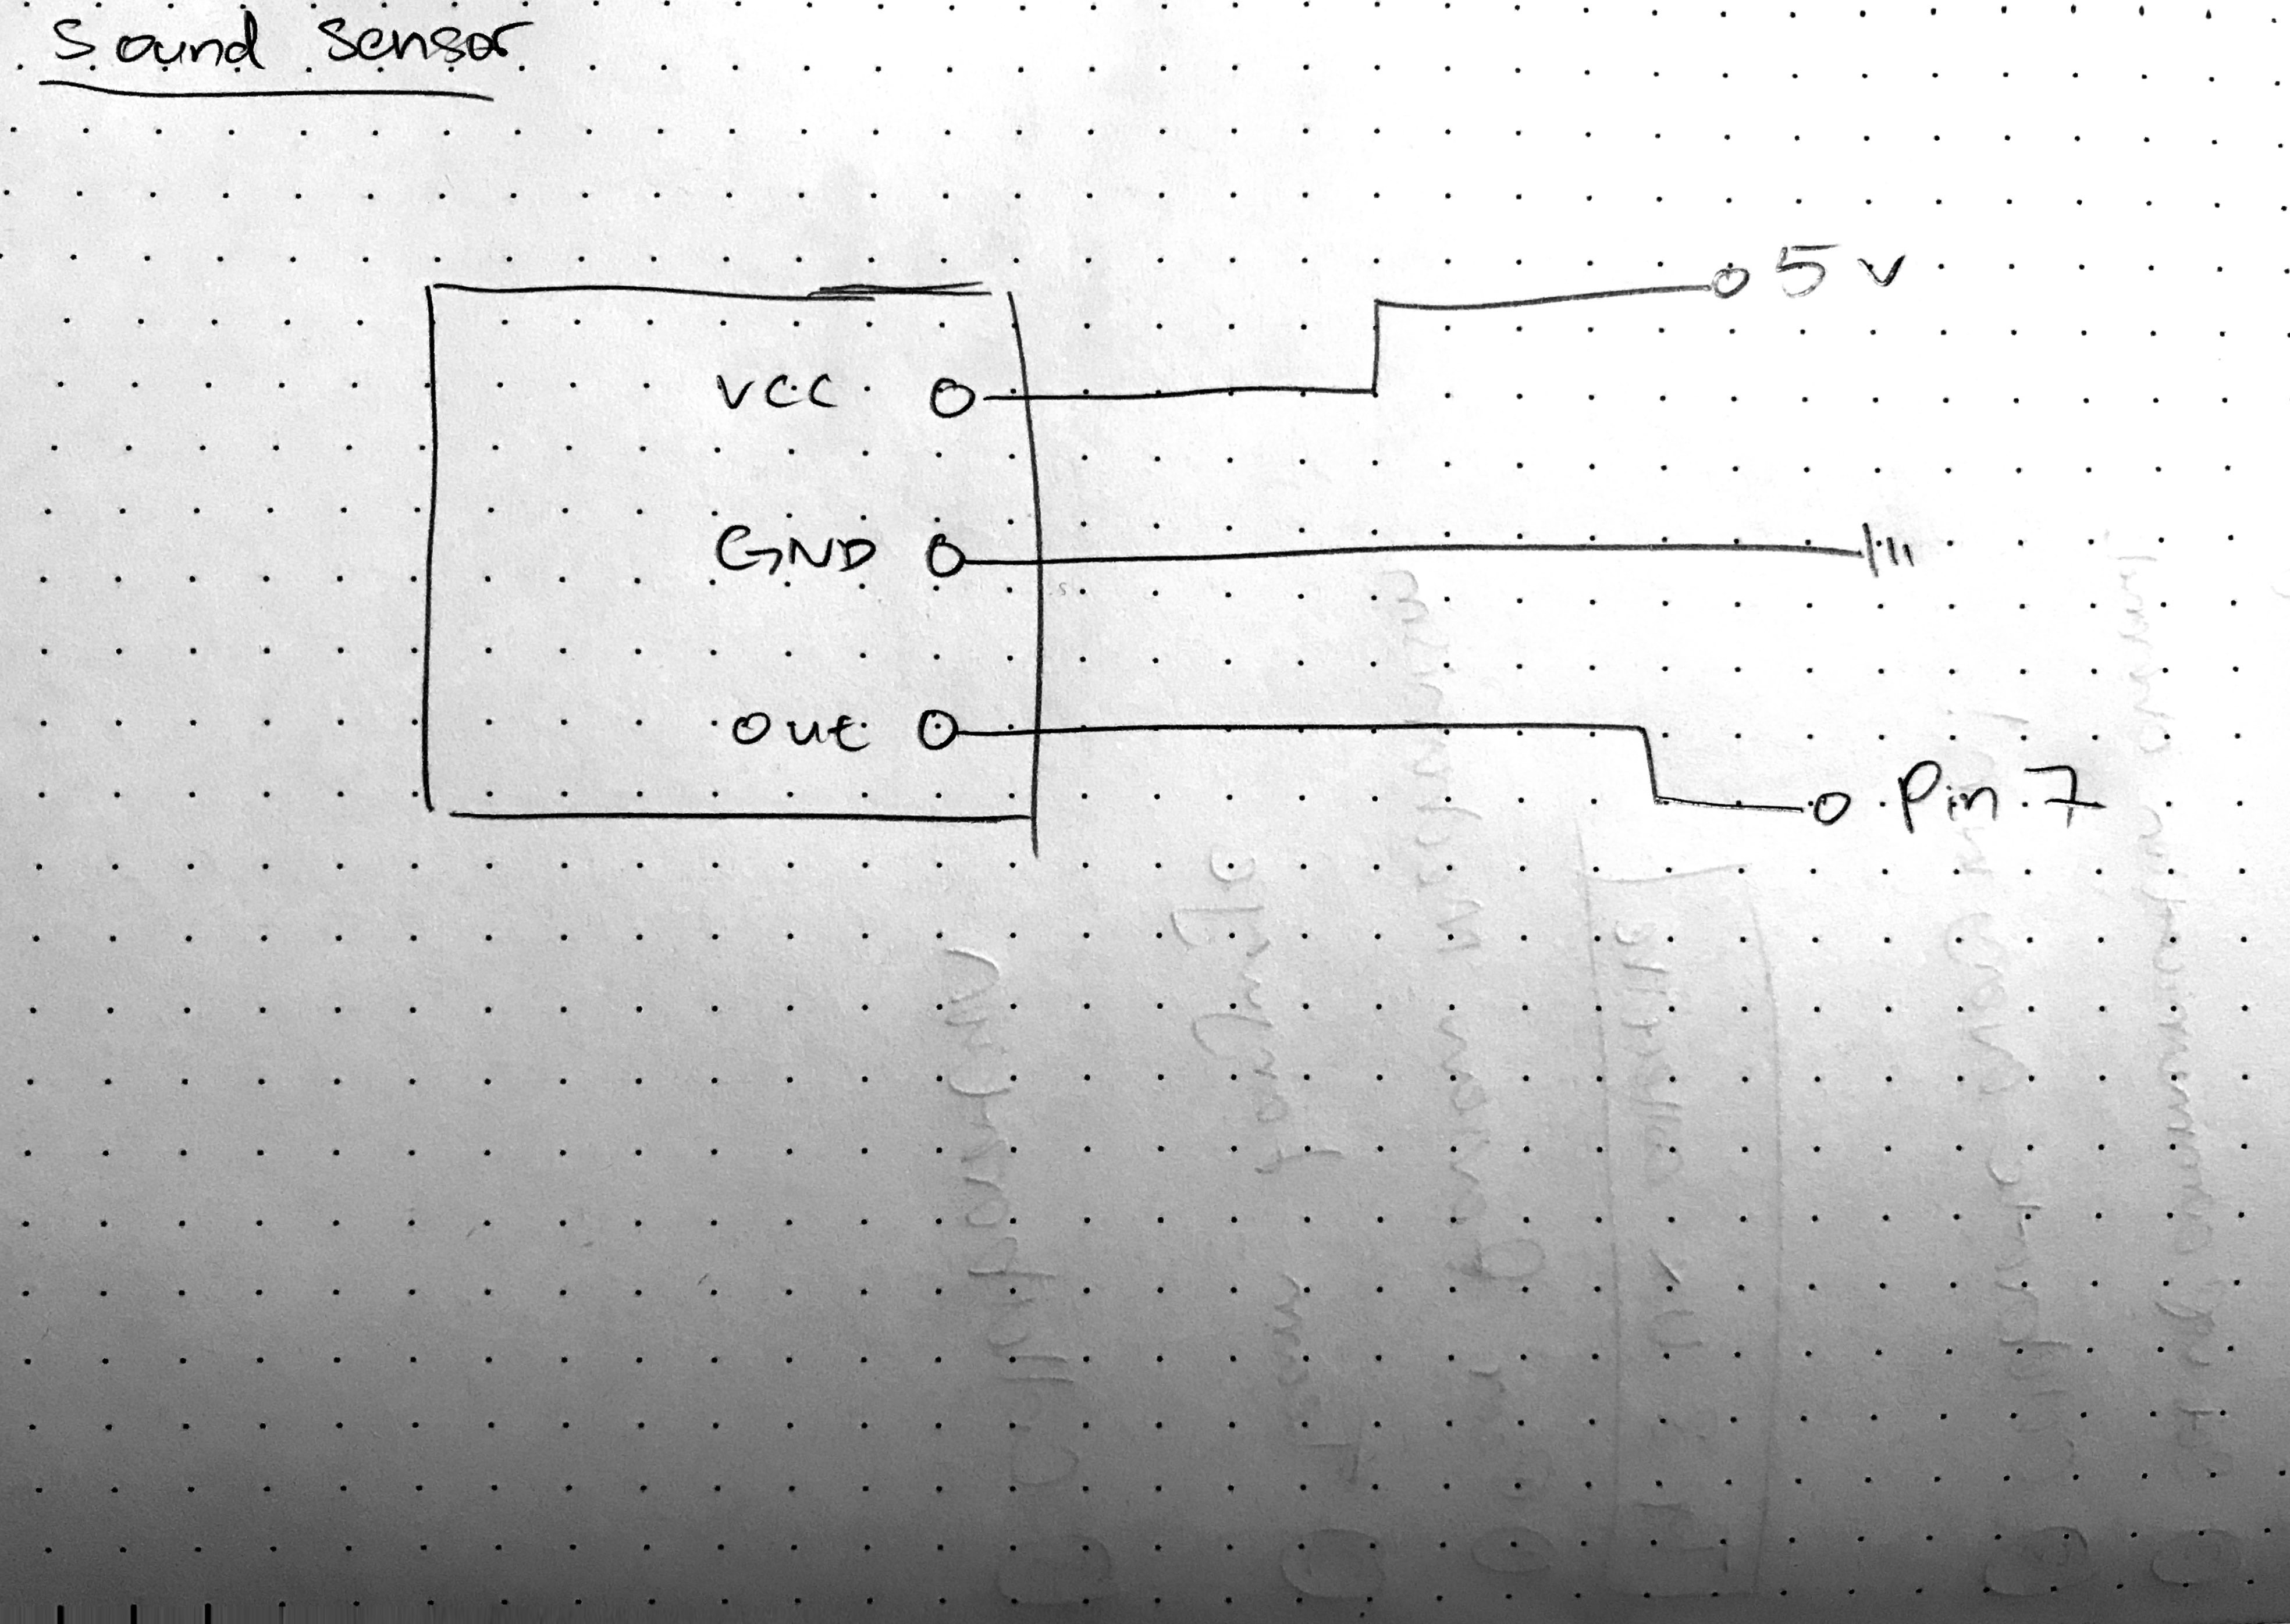 Sound Sensor
5v
VCC
GND
out
Pin 7